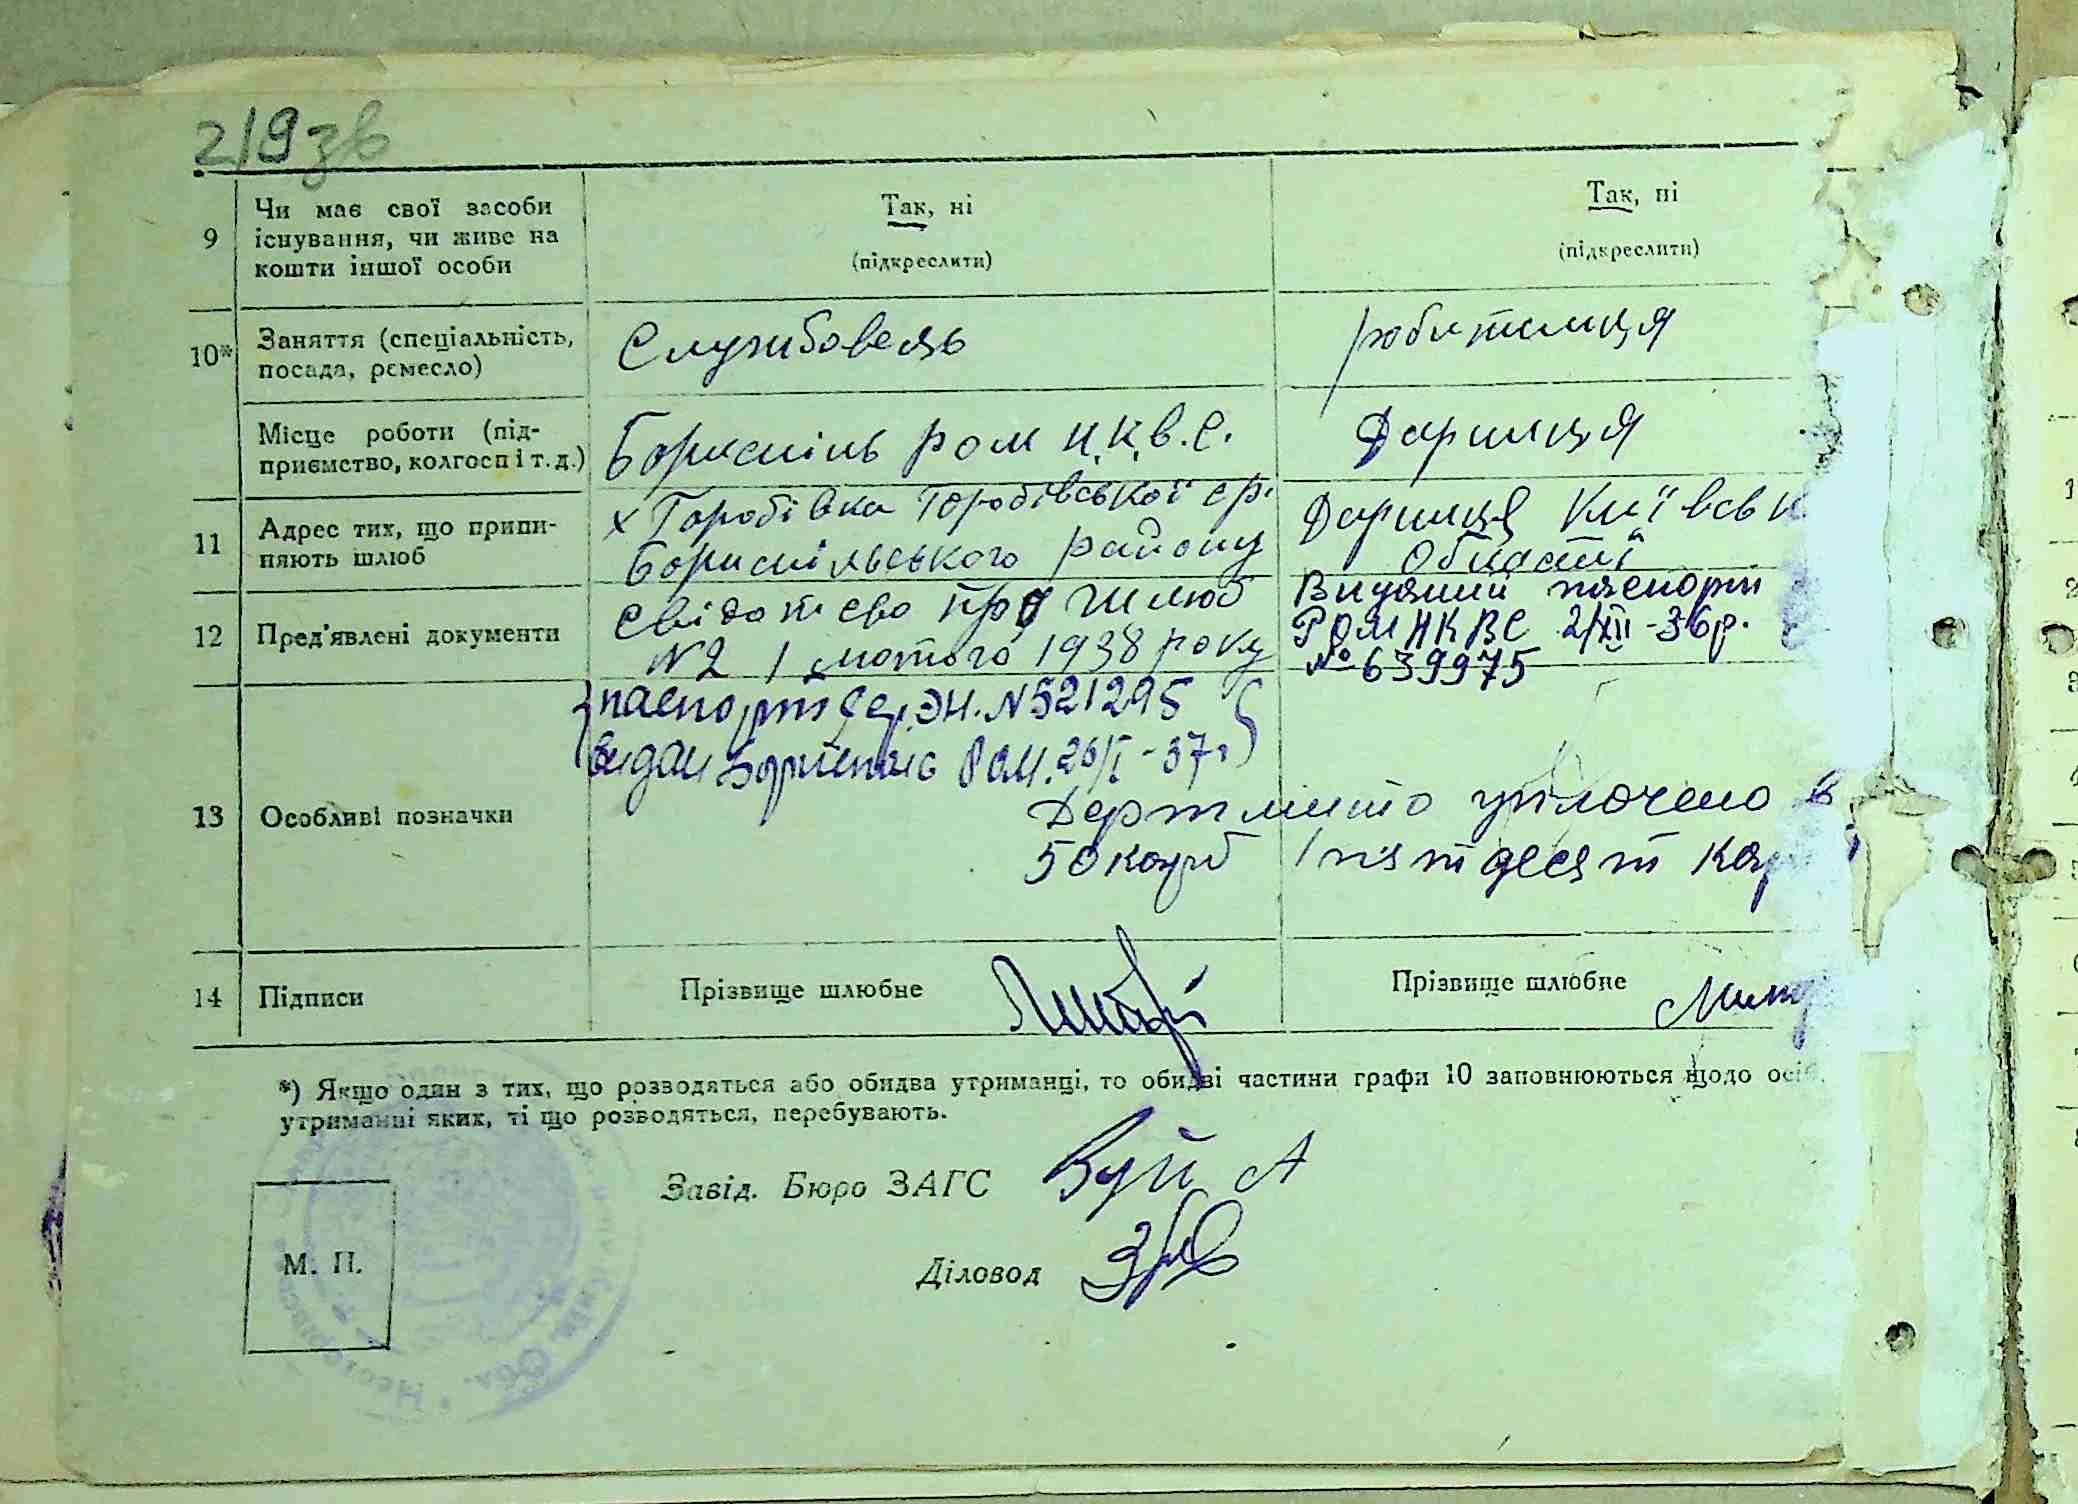 219зв
9 Чи має свої засоби існування, чи живе на кошти іншої особи
Так, ні
(підкреслити)
Так, ні
(підкреслити)
10* Заняття (спеціальність, посада, ремесло)
Службовець
робітниця
Місце роботи (підприємство, колгосп і т. д.)
Бориспіль ром н.к.в.с.
Дарниця
11 Адрес тих, що припиняють шлюб
х Горобівка Горобівської с/р.
Бориспільського району
Дарниця Київськ
Області
12 Пред'явлені документи
Свідотство про шлюб
N2 1 лютого 1938 року
Виданий паспорт
РОМ НКВС 2/XII-36р.
№ 639975
13 Особливі позначки
паспорт сер. ЭН. N521295
видан РОМ. 26/I-37г
Держмито уплочено в
50 карб / пятдесят кар
14 Підписи
Прізвище шлюбне
Прізвище шлюбне
*) Якщо один з тих, що розводяться або обидва утриманці, то обидві частини графи 10 заповнюються щодо осіб,
утриманні яких, ті що розводяться, перебувають.
Завід. Бюро ЗАГС
Діловод
М. П.